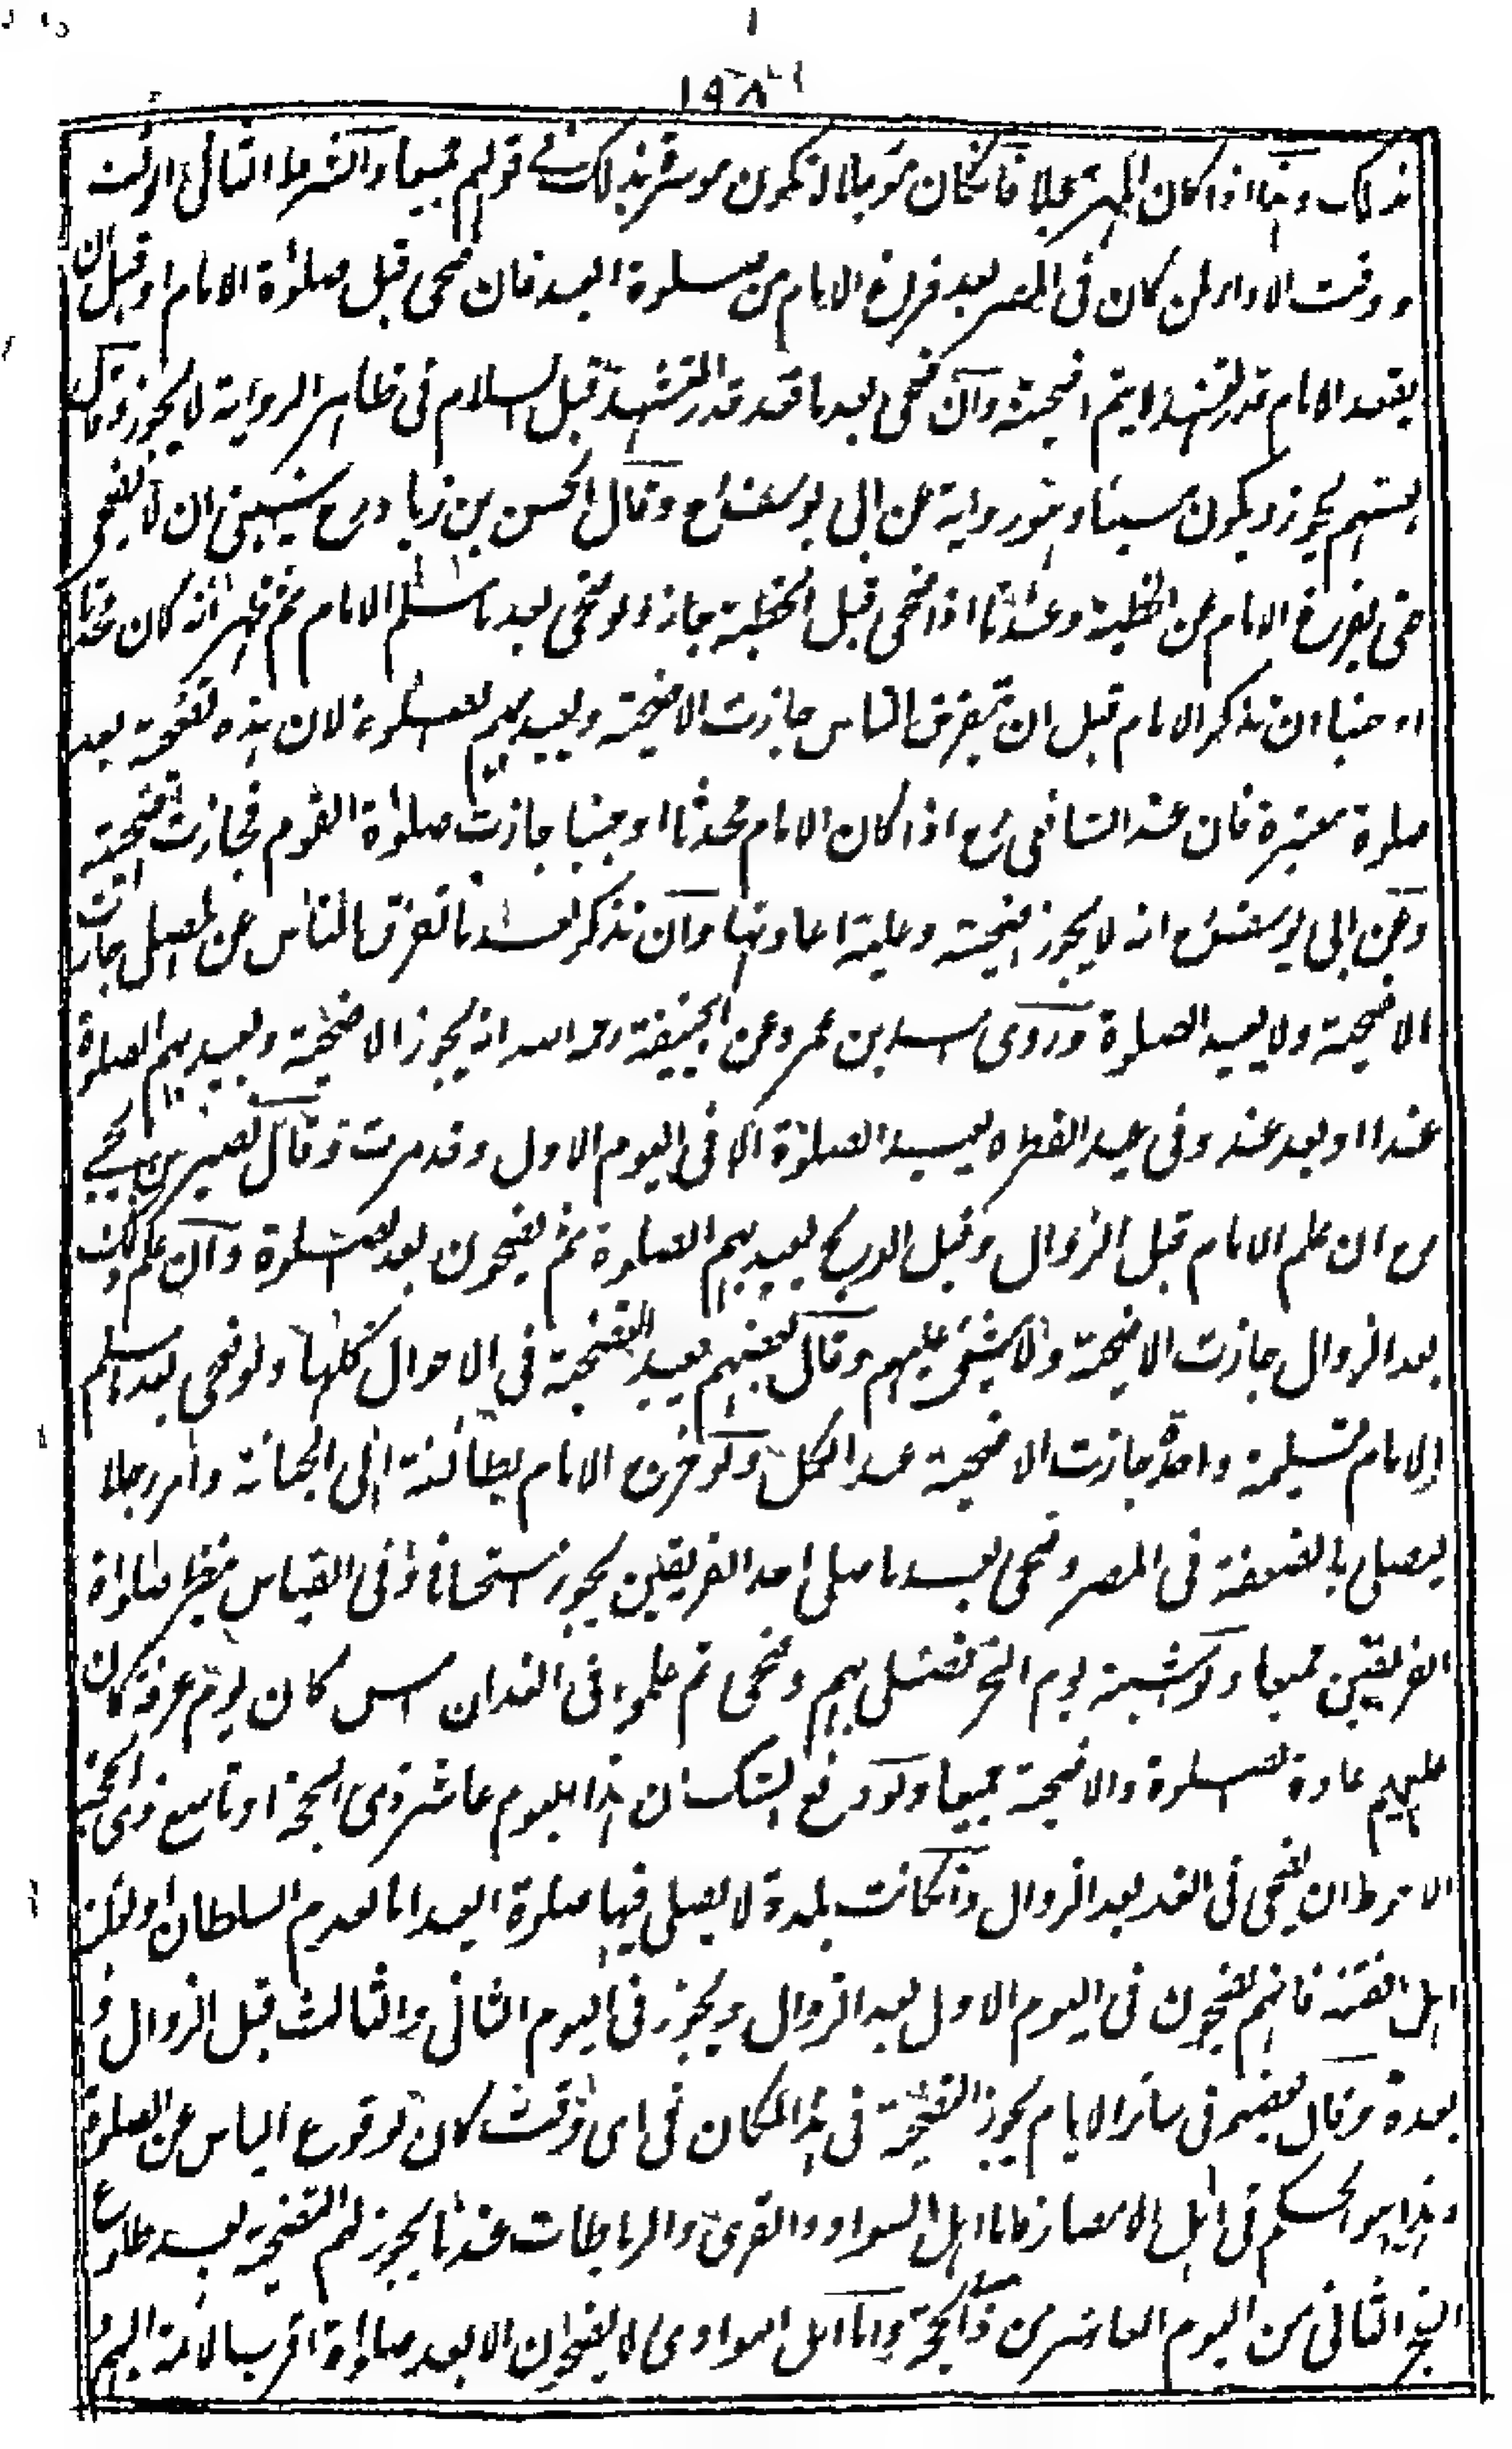 بذلك وهذا اذا كان المهر عجلا فان كان مؤجلا لا تكون موسرة بذلك فى قولهم جميعا والشرط الثانى الوقت
ووقت الاداء لمن كان فى المصر بعد فراغ الامام من صلوة العيد فان ضحى قبل صلوة الامام او قبل ان
يقعد الامام قدر التشهد لا يتم اضحيته وان ضحى بعد ما قعد قدر التشهد قبل السلام فى ظاهر الرواية لا يجوز وقال
بعضهم يجوز ويكون مسيئا وهو رواية عن ابى يوسف رح وقال الحسن بن زياد رح ينبغى ان لا يضحى
حتى يفرغ الامام من الخطبة وعندنا اذا ضحى قبل الخطبة جاز ولو ضحى بعد ما سلم الامام ثم ظهر انه كان محدثا
او جنبا ان تذكر الامام قبل ان يتفرق الناس جازت الاضحية ويعيد بهم الصلوة لان هذه تضحية بعد
صلوة معتبرة فان عند الشافعى رح اذا كان الامام محدثا او جنبا جازت صلوة القوم فجازت اضحيته
وعن ابى يوسف رح انه لا يجوز اضحيته وعليه اعادتها وان تذكر بعد ما تفرق الناس عن المصلى جازت
الاضحية ولا يعيد الصلوة وروى اسد بن عمرو عن ابيحنيفة رحمه الله انه يجوز الاضحية ويعيد بهم الصلوة
غدا او بعد غد وفى عيد الفطر لا يعيد الصلوة الا فى اليوم الاول وقد مرت وقال نصير بن يحيى
رح ان علم الامام قبل الزوال وقبل الذبح يعيد بهم الصلوة ثم يضحون بعد الصلوة وان علم ذلك
بعد الزوال جازت الاضحية ولا شئ عليهم وقال بعضهم يعيد التضحية فى الاحوال كلها ولو ضحى بعد ما سلم
الامام تسليمة واحدة جازت الاضحية عند الكل ولو خرج الامام بطائفة الى الجبانة وامر رجلا
ليصلى بالضعفة فى المصر وضحى بعد ما صلى احد الفريقين يجوز استحسانا وفى القياس ينتظر صلوة
الفريقين جميعا ولو شبه يوم النحر فصلى بهم وضحى ثم علموا فى الغد ان امس كان يوم عرفة كان
عليهم عادة الصلوة والاضحية جميعا ولو وقع الشك ان هذا اليوم عاشر ذى الحجة او تاسع ذى الحجة
الاحوط ان يضحى فى الغد بعد الزوال وان كانت بلدة لا يصلى فيها صلوة العيد اما لعدم السلطان او لغلبة
اهل الفتنة فانهم يضحون فى اليوم الاول بعد الزوال ويجوز فى اليوم الثانى والثالث قبل الزوال و
بعده وقال بعضهم فى سائر الايام يجوز التضحية فى هذا المكان فى اى وقت كان لوقوع الياس عن الصلوة
وهذا هو الحكم فى اهل الامصار فاما اهل السواد والقرى والرباطات عندنا يجوز لهم التضحية بعد طلوع
الفجر الثانى من اليوم العاشر من ذى الحجة واما اهل البوادى لا يضحون الا بعد صلوة اقرب الائمة اليهم